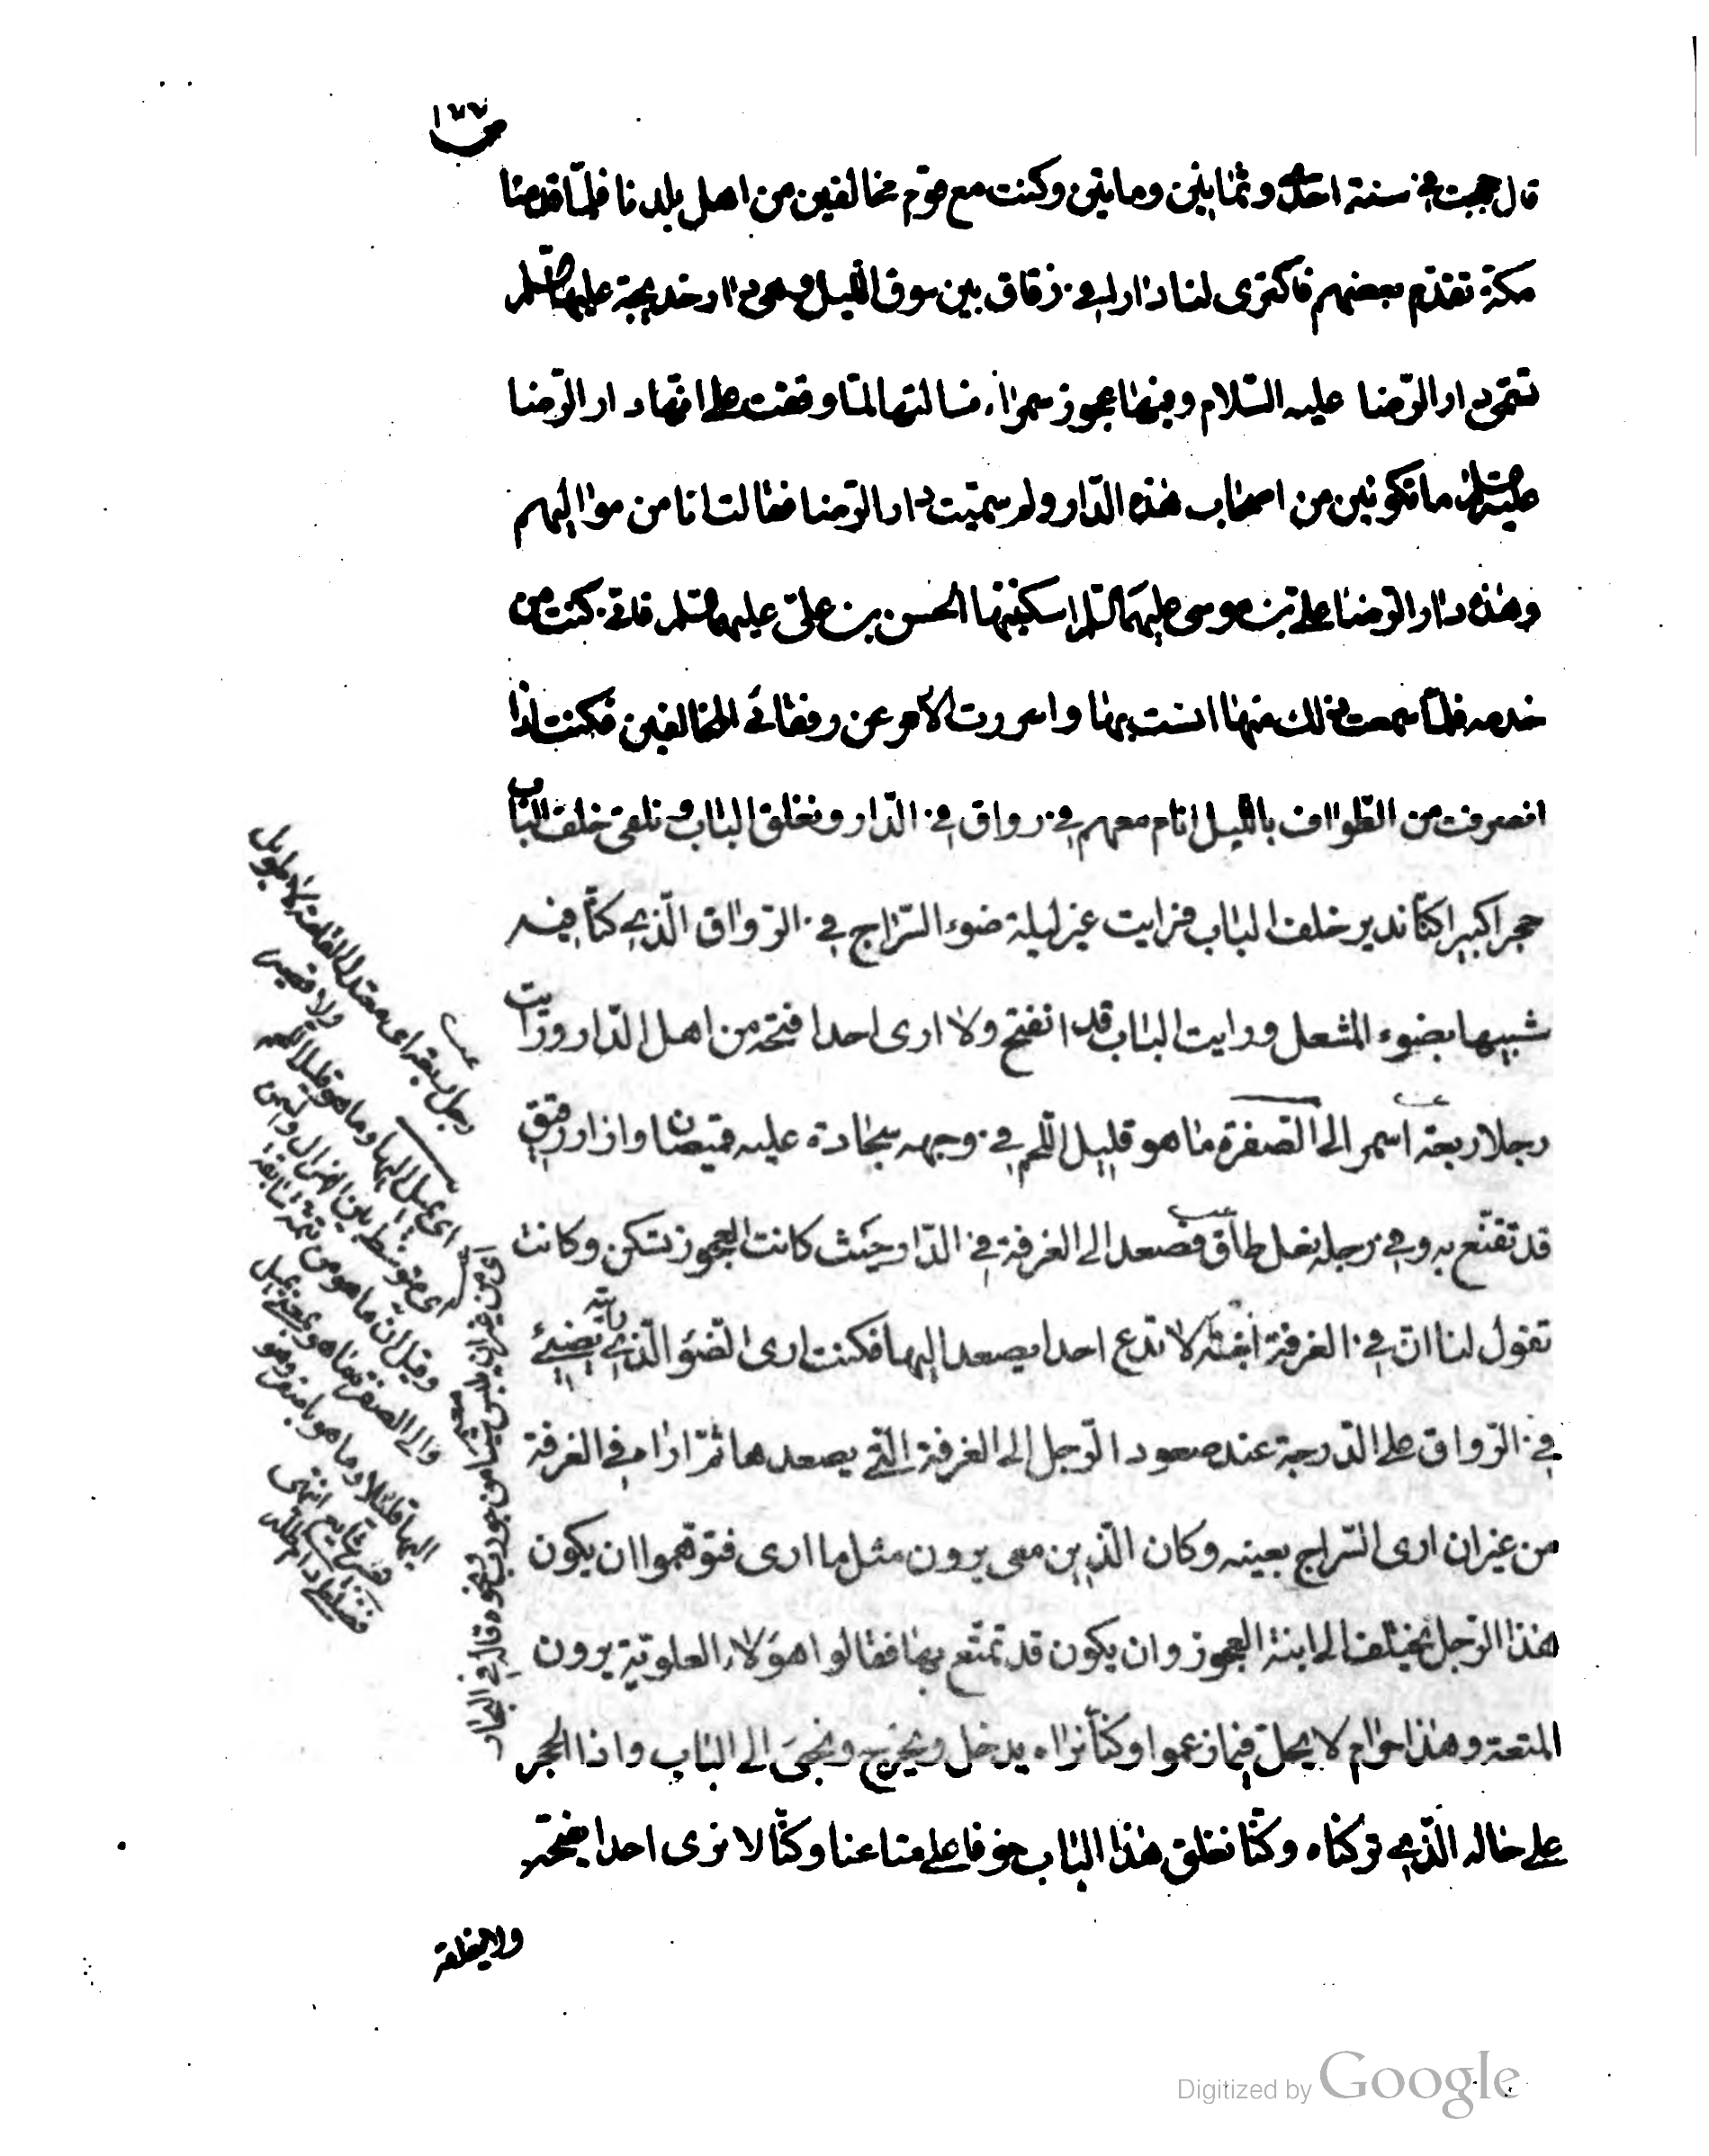 ١٧٧
ص
قال حججت في سنة احدى وثمانين ومايتين وكنت مع قوم مخالفين من اهل بلدنا فلما قدمنا
مكة تقدم بعضهم فاكترى لنا دارا في زقاق بين سوق الليل وهي دار خديجة عليها السلم
تسمى دار الرضا عليه السلام وفيها عجوز سمراء فسالتها لما وقفت على انها دار الرضا
عليه السلم ما تكونين من اصحاب هذه الدار ولم سميت دار الرضا فقالت انا من مواليهم
وهذه دار الرضا علي بن موسى عليهما السلم اسكنينها الحسن بن علي عليهما السلم فاني كنت من
خدمه فلما سمعت ذلك منها انست بها واسررت الامر عن رفقائي المخالفين فكنت اذا
انصرفت من الطواف بالليل انام معهم في رواق في الدار ونغلق الباب ونلقي خلف الباب
حجرا كبيرا كنا ندير خلف الباب فرايت غير ليلة ضوء السراج في الرواق الذي كنا فيه
شبيها بضوء المشعل ورايت الباب قد انفتح ولا ارى احدا فتحه من اهل الدار ورايت
رجلا ربعة اسمر الى الصفرة ما هو قليل اللحم في وجهه سجادة عليه قميصان وازار رقيق
قد تقنع به وفي رجله نعل طاق فصعد الى الغرفة في الدار حيث كانت العجوز تسكن وكانت
تقول لنا ان في الغرفة ابنته لا تدع احدا يصعد اليها فكنت ارى الضوء الذي رايته يضيئ
في الرواق على الدرجة عند صعود الرجل الى الغرفة التي يصعدها ثم اراه في الغرفة
من غير ان ارى السراج بعينه وكان الذين معي يرون مثل ما ارى فتوهموا ان يكون
هذا الرجل يختلف الى ابنة العجوز وان يكون قد تمتع بها فقالوا هؤلاء العلوية يرون
المتعة وهذا حرام لا يحل فيما زعموا وكنا نراه يدخل ويخرج ونجئ الى الباب واذا الحجر
على حاله الذي تركناه وكنا نغلق هذا الباب خوفا على متاعنا وكنا لا نرى احدا يفتحه
ولا يغلقه
رجل ربعة اي معتدل القامة لا طويل
ولا قصير
اي يميل اليها وما هو قليل اللحم
اي متوسط بين الهزال والسمن
وقيل ان ما هو من تتمة سابقه
والى الصفرة ما هو يعني يميل
اليها قليلا وما هو باصفر وهو
اي من غير ان يلبس معه شيئا من جورب ونحوه قاله في البحار
Digitized by Google